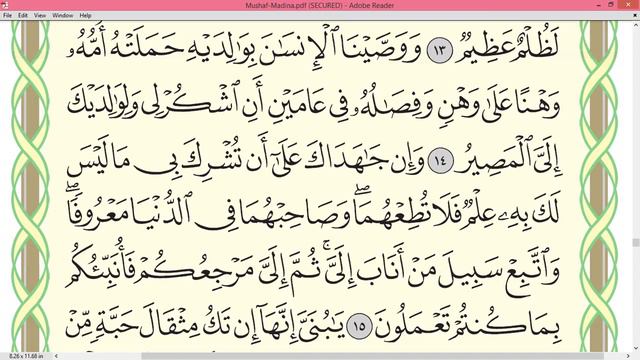 Mushaf-Madina.pdf (SECURED) - Adobe Reader
File Edit View Window Help
لَظُلْمٌ عَظِيمٌ ١٣ وَوَصَّيْنَا ٱلْإِنسَٰنَ بِوَٰلِدَيْهِ حَمَلَتْهُ أُمُّهُۥ
وَهْنًا عَلَىٰ وَهْنٍ وَفِصَٰلُهُۥ فِى عَامَيْنِ أَنِ ٱشْكُرْ لِى وَلِوَٰلِدَيْكَ
إِلَىَّ ٱلْمَصِيرُ ١٤ وَإِن جَٰهَدَاكَ عَلَىٰٓ أَن تُشْرِكَ بِى مَا لَيْسَ
لَكَ بِهِۦ عِلْمٌ فَلَا تُطِعْهُمَا ۖ وَصَاحِبْهُمَا فِى ٱلدُّنْيَا مَعْرُوفًا ۖ
وَٱتَّبِعْ سَبِيلَ مَنْ أَنَابَ إِلَىَّ ۚ ثُمَّ إِلَىَّ مَرْجِعُكُمْ فَأُنَبِّئُكُم
بِمَا كُنتُمْ تَعْمَلُونَ ١٥ يَٰبُنَىَّ إِنَّهَآ إِن تَكُ مِثْقَالَ حَبَّةٍ مِّنْ
8.26 x 11.68 in